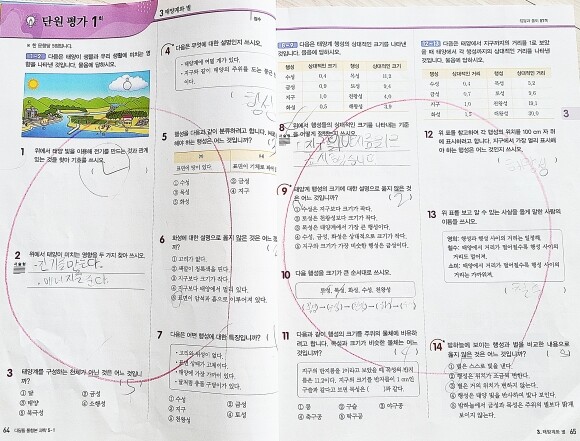 단원 평가 1회
3 태양계와 별
점수
※ 한 문항당 5점입니다.
[1~2] 다음은 태양이 생물과 우리 생활에 미치는 영향을 나타낸 것입니다. 물음에 답하시오.
1 위에서 태양 빛을 이용해 전기를 만드는 것과 관계있는 것을 찾아 기호를 쓰시오.
2 위에서 태양이 미치는 영향을 두 가지 찾아 쓰시오.
3 태양계를 구성하는 천체가 아닌 것은 어느 것입니까?
(5)
① 달
② 금성
③ 태양
④ 소행성
⑤ 북극성
64 다음 통합본 과학 5-1
4 다음은 무엇에 대한 설명인지 쓰시오.
• 태양계에 여덟 개가 있다.
• 지구와 같이 태양의 주위를 도는 둥근
행성
5 행성을 다음과 같이 분류하려고 합니다.
해야 하는 행성은 어느 것입니까?
표면이 땅이 있다.
표면이 기체로
① 수성
② 금성
③ 화성
④ 지구
⑤ 목성
6 화성에 대한 설명으로 옳지 않은 것은 어느
① 고리가 없다.
② 색깔이 청록색을 띤다.
③ 지구보다 크기가 작다.
④ 지구보다 태양에서 멀리 있다.
⑤ 표면이 암석과 흙으로 이루어져 있다.
7 다음은 어떤 행성에 대한 특징입니까?
• 고리와 위성이 있다.
• 표면 상태가 고체이다.
• 태양에 가장 가까이 있다.
① 수성
② 금성
③ 지구
④ 목성
⑤ 토성
⑤ 천왕성
[8~9] 다음은 태양계 행성의 상대적인 크기를 나타낸 것입니다. 물음에 답하시오.
행성 상대적인 크기 행성 상대적인 크기
수성 0.4 목성 11.2
금성 0.9 토성 9.4
지구 1.0 천왕성 4.0
화성 0.5 해왕성 3.9
8 위에서 행성들의 상대적인 크기를 나타내는 기준을 어떻게 정하였는지 쓰시오.
9 태양계 행성의 크기에 대한 설명으로 옳지 않은 것은 어느 것입니까?
(2)
① 수성은 지구보다 크기가 작다.
② 토성은 천왕성보다 크기가 작다.
③ 목성은 태양계에서 가장 큰 행성이다.
④ 수성, 금성, 화성은 상대적으로 크기가 작다.
⑤ 지구와 크기가 가장 비슷한 행성은 금성이다.
10 다음 행성을 크기가 큰 순서대로 쓰시오.
토성, 목성, 화성, 수성, 천왕성
11 다음과 같이 행성의 크기를 주위의 물체에 비유하려고 합니다. 목성과 크기가 비슷한 물체는 어느 것입니까?
지구의 반지름을 1이라고 보았을 때 목성의 반지름은 11.2이다. 지구의 크기를 반지름이 1 cm인 구슬과 같다고 보면 목성은 ( )와 같다.
① 콩
② 구슬
③ 야구공
④ 탁구공
⑤ 축구공
[12~13] 다음은 태양에서 지구까지의 거리를 1로 보았을 때 태양에서 각 행성까지의 상대적인 거리를 나타낸 것입니다. 물음에 답하시오.
행성 상대적인 거리 행성 상대적인 거리
수성 0.4 목성 5.2
금성 0.7 토성 9.6
지구 1.0 천왕성 19.1
화성 1.5 해왕성 30.0
3
12 위 표를 참고하여 각 행성의 위치를 100 cm 자 위에 표시하려고 합니다. 지구에서 가장 멀리 표시해야 하는 행성은 어느 것인지 쓰시오.
13 위 표를 보고 알 수 있는 사실을 옳게 말한 사람의 이름을 쓰시오.
영희: 행성과 행성 사이의 거리는 일정해.
철수: 태양에서 거리가 멀어질수록 행성 사이의 거리도 멀어져.
소미: 태양에서 거리가 멀어질수록 행성 사이의 거리는 가까워져.
철수
14 밤하늘에 보이는 행성과 별을 비교한 내용으로 옳지 않은 것은 어느 것입니까?
① 별은 스스로 빛을 낸다.
② 행성은 위치가 조금씩 변한다.
③ 별은 거의 위치가 변하지 않는다.
④ 행성은 태양 빛을 반사하여 빛나 보인다.
⑤ 밤하늘에서 금성과 목성은 주위의 별보다 밝게 보이지 않는다.
3. 태양계와 별 65